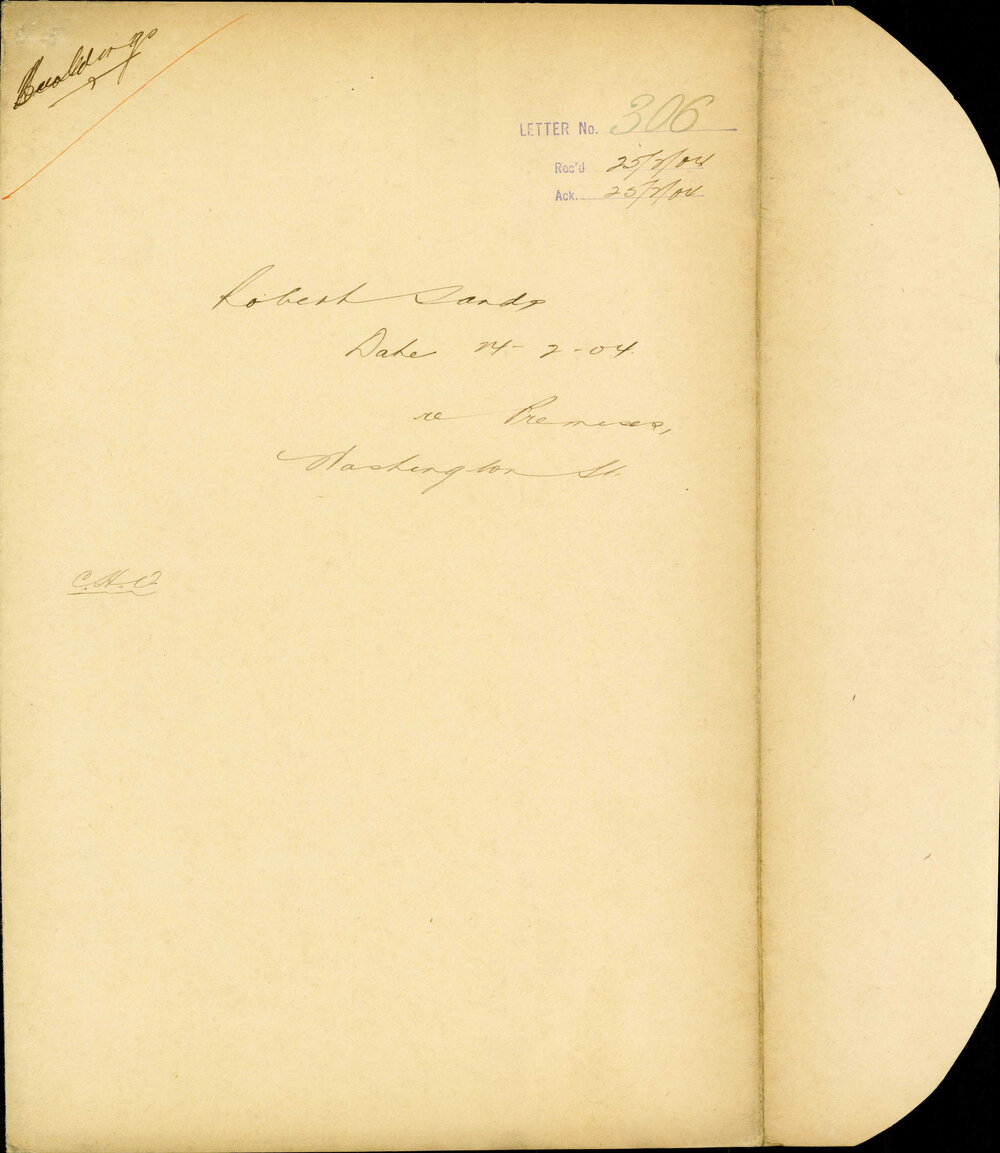 Buildings
LETTER No. 306
Rec'd 25/2/04
Ack. 25/2/04
Robert Sands
Date 24-2-04.
re Premises,
Washington St.
C.H.O.